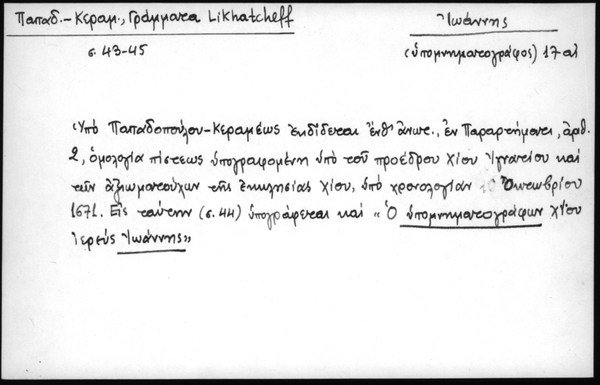 Παπαδ.-Κεραμ., Γράμματα Likhatcheff
σ. 43-45
Ἰωάννης
(ὑπομνηματογράφος) 17 αἰ
Ὑπὸ Παπαδοπούλου-Κεραμέως ἐκδίδεται ἔνθ' ἄνωτ., ἐν Παραρτήματι, ἀριθ.
2, ὁμολογία πίστεως ὑπογραφομένη ὑπὸ τοῦ προέδρου Χίου Ἰγνατίου καὶ
τῶν ἀξιωματούχων τῆς ἐκκλησίας Χίου, ὑπὸ χρονολογίαν Ὀκτωβρίου
1671. Εἰς ταύτην (σ. 44) ὑπογράφεται καὶ «Ὁ ὑπομνηματογράφων Χίου
ἱερεὺς Ἰωάννης»